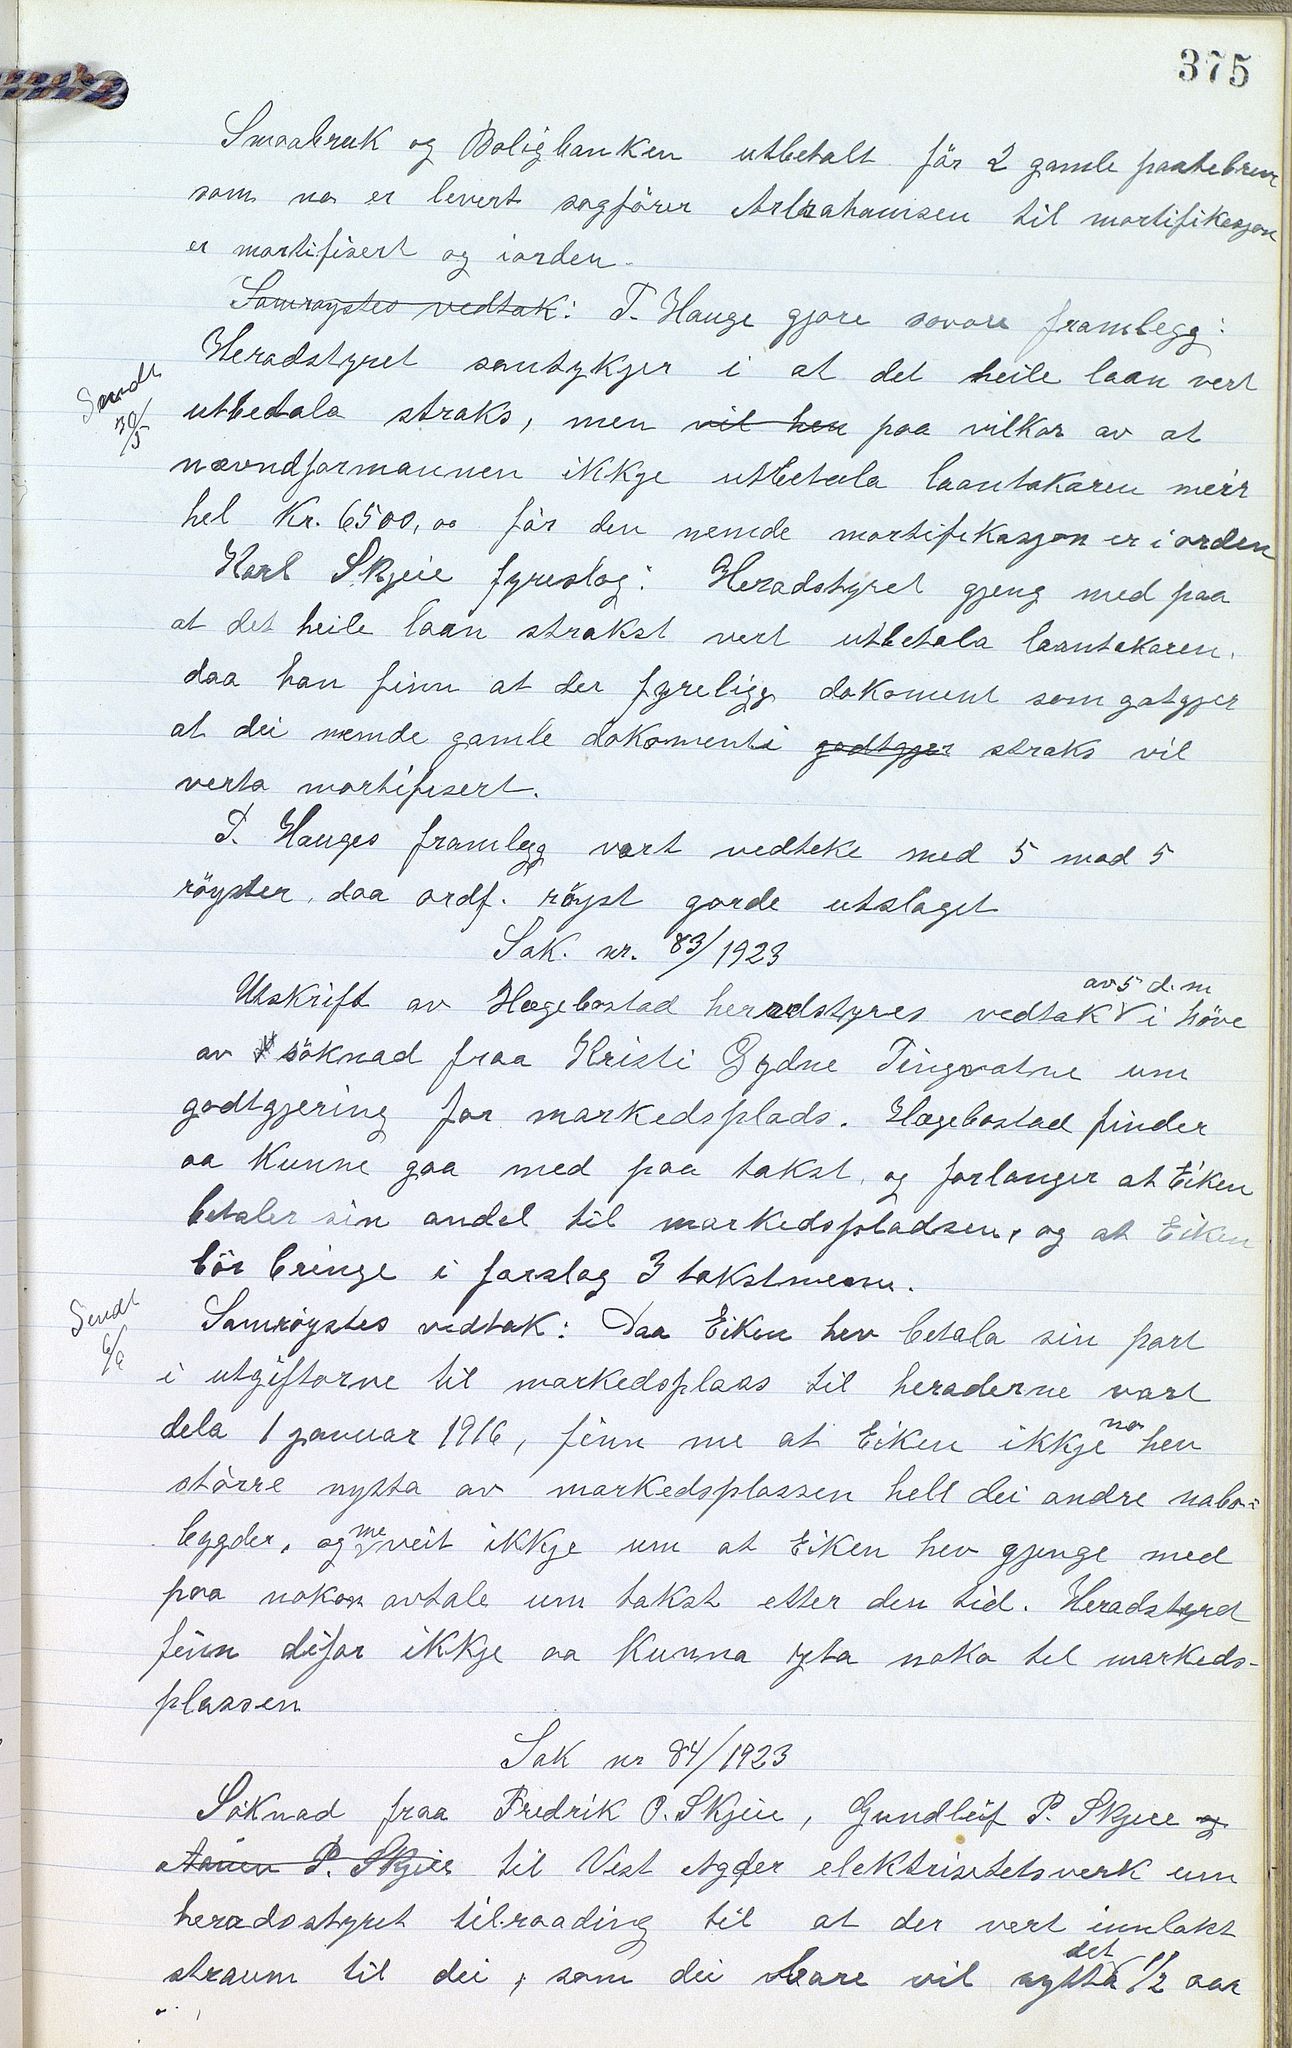 375
Smaabruk og Boligbanken utbetalt för 2 gamle pantebrev
som no er levert sagförer Abrahamsen til mortifikasjon
er mortifisert og iorden.
Samröystes vedtak: T. Hauge gjore sovore framlegg:
Heradstyret samtykjer i at det heile laan vert
Sendt 30/5
utbetala straks, men vil hev paa vilkor av at
nævndformannen ikkje utbetala laantakaren meir
hel Kr. 6500,oo för den nemde mortifikasjon er i orden
Karl Skjeie fyreslog: Heradstyret gjeng med paa
at det heile laan strakst vert utbetala laantakaren.
daa han finn at der fyreligg dokoment som gotgjer
at dei nemde gamle dokomenti godtgjer straks vil
verta mortifisert.
T. Hauges framlegg vart vedteke med 5 mod 5
röyster, daa ordf. röyst gorde utslaget
Sak. nr. 83/1923
Utskrift av Hægebostad heradstyres vedtak av 5 d.m i höve
av söknad fraa Kristi Gydne Tingvatne um
godtgjering for markedsplads. Hægebostad finder
aa kunne gaa med paa takst, og forlanger at Eiken
betaler sin andel til markedspladsen, og at Eiken
bör bringe i forslag 3 takstmenn.
Sendt 6/6
Samröystes vedtak: Daa Eiken hev betala sin part
i utgiftorne til markedsplass til heraderne vart
dela 1 januar 1916, finn me at Eiken ikkje no hev
större nytta av markedsplassen hell dei andre nabo-
bygder, og me veit ikkje um at Eiken hev gjenge med
paa nokon avtale um takst etter den tid. Heradstyret
finn difor ikkje aa kunna yta noko til markeds-
plassen
Sak nr 84/1923
Söknad fraa Fredrik O. Skjeie, Gundleif P. Skjeie og
Aanen P. Skjeie til Vest Agder elektrisitetsverk um
heradsstyret tilraading til at der vert innlakt
straum til dei, som dei bare vil nytta det 1/2 aar